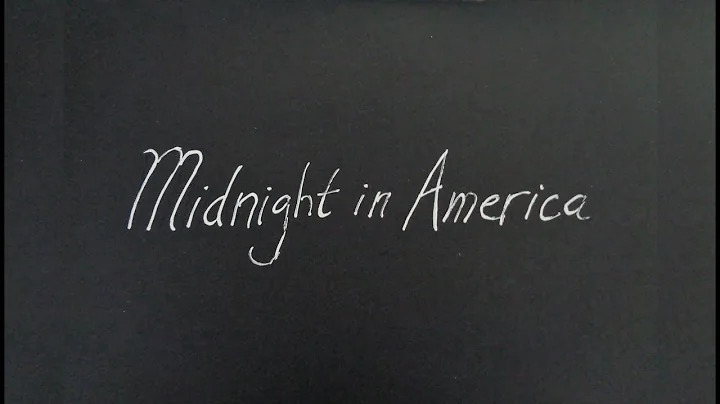 Midnight in America